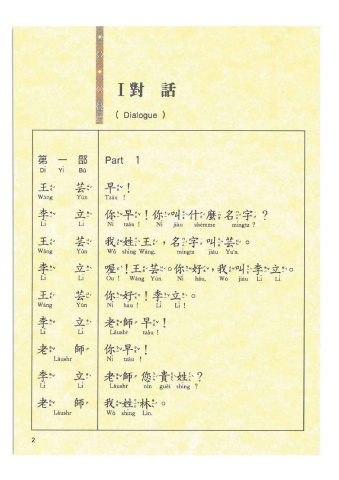 I 對 話
( Dialogue )
第 一 部 Part 1
Dì Yī Bù
王 芸 早!
Wáng Yún Tzǎu !
李 立 你早!你叫什麼名字?
Lǐ Lì Nǐ tzǎu ! Nǐ jiàu shémme míngtz ?
王 芸 我姓王,名字叫芸。
Wáng Yún Wǒ shìng Wáng, míngtz jiàu Yún.
李 立 喔!王芸。你好,我叫李立。
Lǐ Lì Ou ! Wáng Yún. Nǐ hǎu, Wǒ jiàu Lǐ Lì.
王 芸 你好!李立。
Wáng Yún Nǐ hǎu ! Lǐ Lì !
李 立 老師早!
Lǐ Lì Lǎushr tzǎu !
老 師 你早!
Lǎushr Nǐ tzǎu !
李 立 老師您貴姓?
Lǐ Lì Lǎushr nín guèi shìng ?
老 師 我姓林。
Lǎushr Wǒ shìng Lín.
2